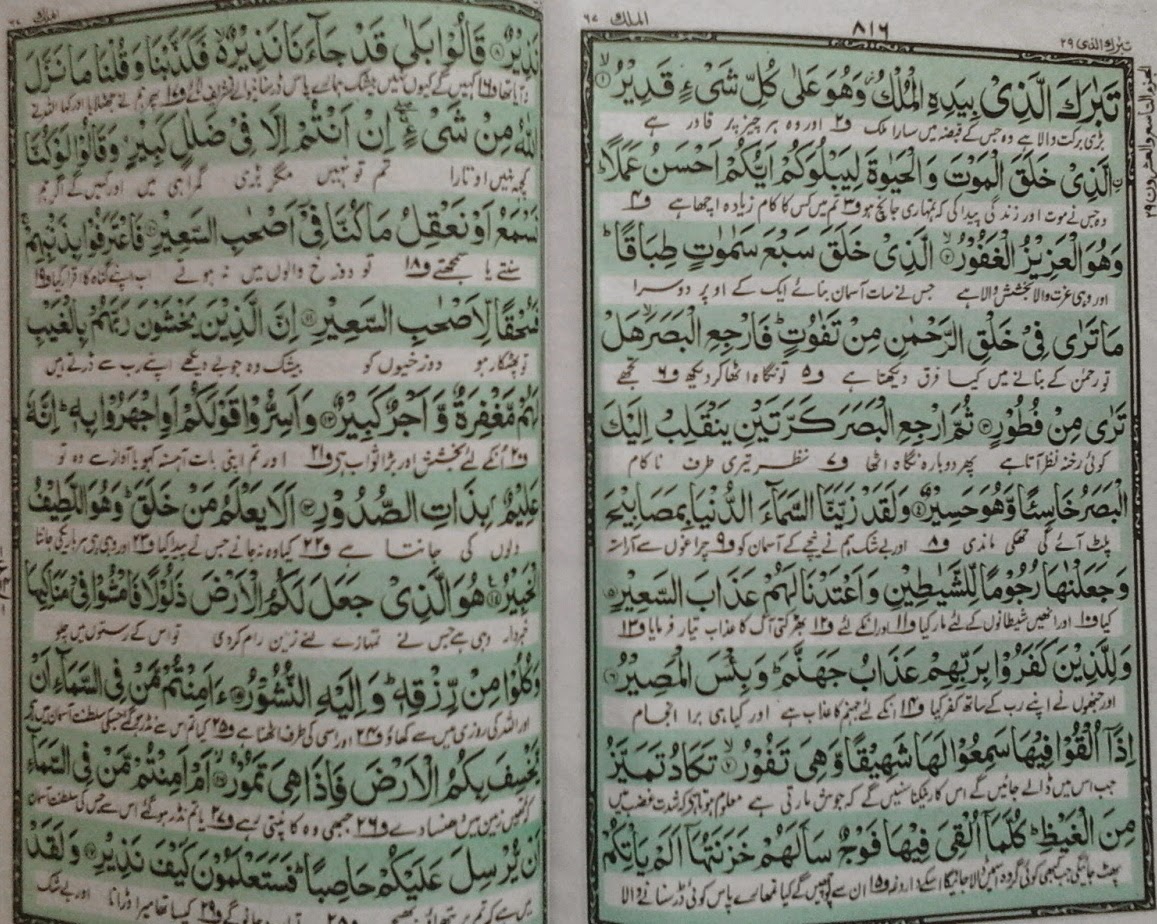 الملك ٦٧
٨١٦
تبٰرك الذی ٢٩
تَبٰرَكَ الَّذِیْ بِیَدِهِ الْمُلْكُ وَهُوَ عَلٰی كُلِّ شَیْءٍ قَدِیْرُ ۙ﴿۱﴾
بڑی برکت والا ہے وہ جس کے قبضہ میں سارا ملک ف۲ اور وہ ہر چیز پر قادر ہے
ِ۟الَّذِیْ خَلَقَ الْمَوْتَ وَالْحَیٰوةَ لِیَبْلُوَكُمْ اَیُّكُمْ اَحْسَنُ عَمَلًا ؕ
وہ جس نے موت اور زندگی پیدا کی کہ تمہاری جانچ ہو ف۳ تم میں کس کا کام زیادہ اچھا ہے ف۴
وَهُوَ الْعَزِیْزُ الْغَفُوْرُ ۙ﴿۲﴾ الَّذِیْ خَلَقَ سَبْعَ سَمٰوٰتٍ طِبَاقًا ؕ
اور وہی عزت والا بخشش والا ہے جس نے سات آسمان بنائے ایک کے اوپر دوسرا
مَا تَرٰی فِیْ خَلْقِ الرَّحْمٰنِ مِنْ تَفٰوُتٍ ؕ فَارْجِعِ الْبَصَرَ ۙ هَلْ
تو رحمٰن کے بنانے میں کیا فرق دیکھتا ہے ف۵ تو نگاہ اٹھا کر دیکھ ف۶ تجھے
تَرٰی مِنْ فُطُوْرٍ ﴿۳﴾ ثُمَّ ارْجِعِ الْبَصَرَ كَرَّتَیْنِ یَنْقَلِبْ اِلَیْكَ
کوئی رخنہ نظر آتا ہے پھر دوبارہ نگاہ اٹھا ف۷ نظر تیری طرف ناکام
الْبَصَرُ خَاسِئًا وَّهُوَ حَسِیْرٌ ﴿۴﴾ وَلَقَدْ زَیَّنَّا السَّمَآءَ الدُّنْیَا بِمَصَابِیْحَ
پلٹ آئے گی تھکی ماندی ف۸ اور بے شک ہم نے نیچے کے آسمان کو ف۹ چراغوں سے آراستہ
وَجَعَلْنٰهَا رُجُوْمًا لِّلشَّیٰطِیْنِ وَاَعْتَدْنَا لَهُمْ عَذَابَ السَّعِیْرِ ﴿۵﴾
کیا ف۱۰ اور انھیں شیطانوں کے لئے مار کیا ف۱۱ اور انکے لئے ف۱۲ بھڑکتی آگ کا عذاب تیار فرمایا ف۱۳
وَلِلَّذِیْنَ كَفَرُوْا بِرَبِّهِمْ عَذَابُ جَهَنَّمَ ؕ وَبِئْسَ الْمَصِیْرُ ﴿۶﴾
اور جنھوں نے اپنے رب کے ساتھ کفر کیا ف۱۴ انکے لئے جہنم کا عذاب ہے اور کیا ہی برا انجام
اِذَاۤ اُلْقُوْا فِیْهَا سَمِعُوْا لَهَا شَهِیْقًا وَّهِیَ تَفُوْرُ ۙ﴿۷﴾ تَكَادُ تَمَیَّزُ
جب اس میں ڈالے جائیں گے اس کا رینکنا سنیں گے کہ جوش مارتی ہے معلوم ہوتا ہے کہ شدت غضب میں
مِنَ الْغَیْظِ ؕ كُلَّمَاۤ اُلْقِیَ فِیْهَا فَوْجٌ سَاَلَهُمْ خَزَنَتُهَاۤ اَلَمْ یَاْتِكُمْ
پھٹ جائیگی جب کبھی کوئی گروہ اسمیں ڈالا جائیگا اسکے داروغہ ف۱۵ ان سے پوچھیں گے کیا تمھارے پاس کوئی ڈر سنانے والا
الملك
نَذِیْرٌ ﴿۸﴾ قَالُوْا بَلٰی قَدْ جَآءَنَا نَذِیْرٌ ۙ فَكَذَّبْنَا وَقُلْنَا مَا نَزَّلَ
نہ آیا تھا ف۱۶ کہیں گے کیوں نہیں بیشک ہمارے پاس ڈر سنانے والے تشریف لائے ف۱۷ پھر ہم نے جھٹلایا اور کہا اللہ نے
اللّٰهُ مِنْ شَیْءٍ ۖۚ اِنْ اَنْتُمْ اِلَّا فِیْ ضَلٰلٍ كَبِیْرٍ ﴿۹﴾ وَقَالُوْا لَوْ كُنَّا
کچھ نہیں اوتارا تم تو نہیں مگر بڑی گمراہی میں اور کہیں گے اگر ہم
نَسْمَعُ اَوْ نَعْقِلُ مَا كُنَّا فِیْۤ اَصْحٰبِ السَّعِیْرِ ﴿۱۰﴾ فَاعْتَرَفُوْا بِذَنْۢبِهِمْ ۚ
سنتے یا سمجھتے ف۱۸ تو دوزخ والوں میں نہ ہوتے اب اپنے گناہ کا اقرار کیا ف۱۹
فَسُحْقًا لِّاَصْحٰبِ السَّعِیْرِ ﴿۱۱﴾ اِنَّ الَّذِیْنَ یَخْشَوْنَ رَبَّهُمْ بِالْغَیْبِ
تو پھٹکار ہو دوزخیوں کو بیشک وہ جو بے دیکھے اپنے رب سے ڈرتے ہیں
لَهُمْ مَّغْفِرَةٌ وَّاَجْرٌ كَبِیْرٌ ﴿۱۲﴾ وَاَسِرُّوْا قَوْلَكُمْ اَوِ اجْهَرُوْا بِهٖ ؕ اِنَّهٗ
ف۲۰ انکے لئے بخشش اور بڑا ثواب ہے ف۲۱ اور تم اپنی بات آہستہ کہو یا آواز سے وہ تو
عَلِیْمٌۢ بِذَاتِ الصُّدُوْرِ ﴿۱۳﴾ اَلَا یَعْلَمُ مَنْ خَلَقَ ؕ وَهُوَ اللَّطِیْفُ
دلوں کی جانتا ہے ف۲۲ کیا وہ نہ جانے جس نے پیدا کیا ف۲۳ اور وہی ہے ہر باریکی جانتا
الْخَبِیْرُ ﴿۱۴﴾ هُوَ الَّذِیْ جَعَلَ لَكُمُ الْاَرْضَ ذَلُوْلًا فَامْشُوْا فِیْ مَنَاكِبِهَا
خبردار وہی ہے جس نے تمہارے لئے زمین رام کر دی تو اس کے رستوں میں چلو
وَكُلُوْا مِنْ رِّزْقِهٖ ؕ وَاِلَیْهِ النُّشُوْرُ ﴿۱۵﴾ ءَاَمِنْتُمْ مَّنْ فِی السَّمَآءِ اَنْ
اور اللہ کی روزی میں سے کھاؤ ف۲۴ اور اسی کی طرف اٹھنا ہے ف۲۵ کیا تم اس سے نڈر ہو گئے جسکی سلطنت آسمان میں ہے
یَّخْسِفَ بِكُمُ الْاَرْضَ فَاِذَا هِیَ تَمُوْرُ ۙ﴿۱۶﴾ اَمْ اَمِنْتُمْ مَّنْ فِی السَّمَآءِ
کہ تمہیں زمین میں دھنسا دے ف۲۶ جبھی وہ کانپتی رہے ف۲۷ یا تم نڈر ہو گئے اس سے جس کی سلطنت آسمان
اَنْ یُّرْسِلَ عَلَیْكُمْ حَاصِبًا ؕ فَسَتَعْلَمُوْنَ كَیْفَ نَذِیْرِ ﴿۱۷﴾ وَلَقَدْ
میں ہے کہ تم پر پتھراؤ بھیجے ف۲۸ ف۲۹ کیسا تھا میرا ڈرانا اور بے شک